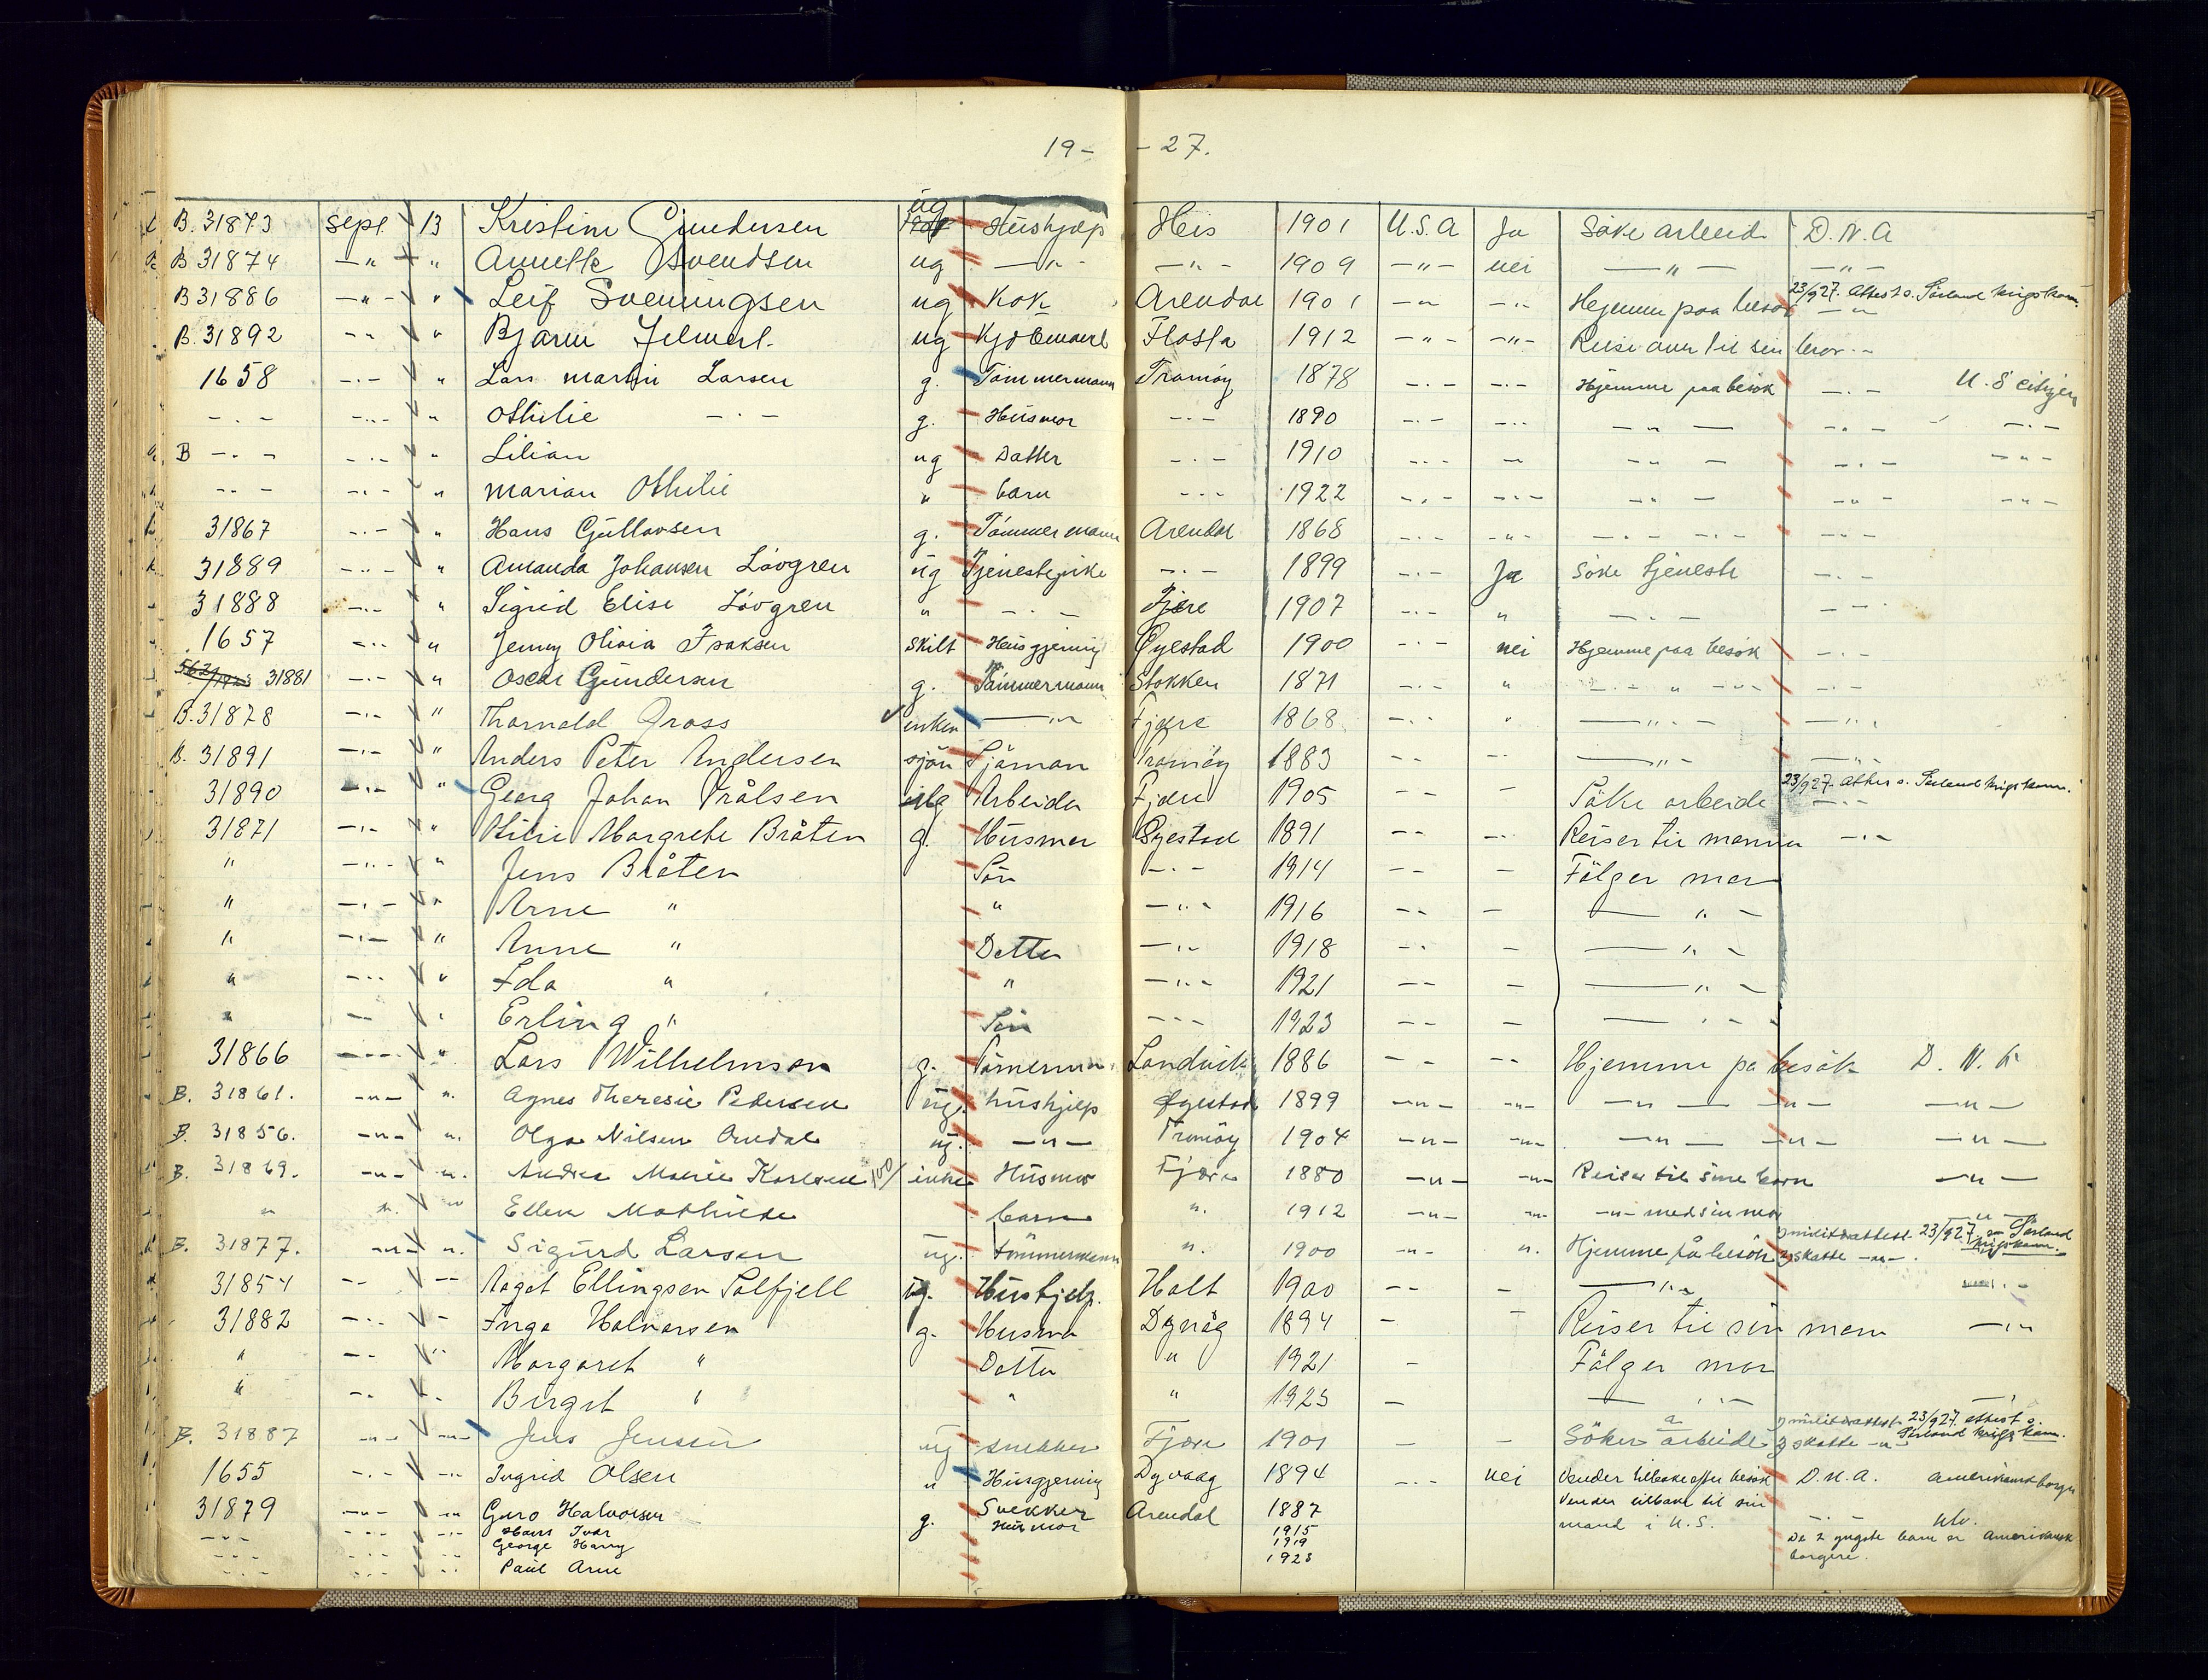 19- -27.
B. 31873 Sept 13 Kristine Gundersen ug Hushjælp His 1901 U.S.A Ja Söke arbeid D.N.A
B 31874 -"- " Annette Svendsen ug -"- -"- 1909 -"- nei -"- -"-
B 31886 -"- " Leif Sveningsen ug Kok Arendal 1901 -"- -"- Hjemme paa besök 23/9 27. Attest o. Sörland krigskom. -"-
B. 31892 -"- " Bjarne ug Flosta 1912 -"- -"- Reise over til sin bror -"-
1658 -"- " Lars Martin Larsen g. Tömmermann Tromöy 1878 -"- -"- Hjemme paa besök -"- U.S citizen
-"- -"- " Othilie -"- g. Husmor -"- 1890 -"- -"- -"- -"- -"-
B -"- -"- " Lilian ug Datter -"- 1910 -"- -"- -"- -"- -"-
-"- -"- " Marian Othilie " barn -"- 1922 -"- -"- -"- -"- -"-
31867 -"- " Hans Gullovsen g. Tömmermann Arendal 1868 -"- -"- -"- -"- -"-
31889 -"- " Amanda Johansen Lövgren ug Tjenestepike -"- 1899 -"- Ja Söke tjeneste -"-
31888 -"- " Sigrid Elise Lövgren " -"- Fjære 1907 -"- " -"- -"-
1657 -"- " Jenny Olivia Isaksen skilt Husgjerning Øyestad 1900 -"- nei Hjemme paa besök -"-
31881 -"- " Oscar Gundersen g. Tömmermann Stokken 1871 -"- " -"- -"-
B. 31878 -"- " Thorvald Gross enken -"- Fjære 1868 -"- " -"- -"-
B. 31891 -"- " Anders Peter Andersen Sjöman Tromöy 1883 -"- -"- -"- -"-
31890 -"- " Georg Johan Arbeider Fjære 1905 -"- - Söke arbeide 23/9 27. Attest o. Sörland krigskom. -"-
31871 -"- " Margrethe Bråten g. Husmor Öyestad 1891 -"- -"- Reiser til mannen -"-
" -"- " Jens Bråten Sön -"- 1914 -"- - Fölger mor
" -"- " Arne " " -"- 1916 -"- - -"-
" -"- " Anne " Datter -"- 1918 -"- - -"-
" -"- " Ida " " -"- 1921 -"- - -"-
" -"- " Erling " Sön -"- 1923 -"- - -"-
31866 -"- " Lars Wilhelmsen g. Tömerman Landvik 1886 -"- -"- Hjemme på besök D.N.A
B. 31861. -"- ". Agnes Theresie Pedersen ug. hushjelp Øyestad 1899 -"- -"- -"- -"- -"-
B. 31856. -"- ". Olga Nilsen Omdal ug. -"- Tromöy 1904 -"- -"- -"- -"- -"-
B. 31869. -"- ". Andrea Marie Karlsen enke Husmor Fjære 1880 -"- -"- Reiser til sine barn -"-
" ". " Ellen Mathilde barn ". 1912 -"- -"- -"- med sin mor -"-
B. 31877. -"- ". Sigurd Larsen ug. tömmermann ". 1900 -"- ". Hjemme på besök 1) militærattest 23/9 27 Sörland krigskom. 2) skatte -"-
31854 -"- -- Aagot Ellingsen Solfjell ug. Hushjelp. Holt 1900 -- - -"- -"-
31882 -"- - Inga Halvorsen g. Husmor Dyvåg 1894 - - Reiser til sin mann -"-
" -- " Margaret " Datter " 1921 - Fölger mor
" -- " Birgit " " " 1925 - -"- -"-
B. 31887 -"- -"- Jens Jensen ug snekker Fjære 1901 - - Söker arbeide 1) militærattest 23/9 27. attest o. Sörland krigskom. 2) skatte -"-
1655 -"- -"- Ingrid Olsen " Husgjerning Dyvaag 1894 -"- nei Vender tilbake efter besök D.N.A. amerikansk borger
31879 -"- -"- Guro Halvorsen g. Husmor Arendal 1887 Vender tilbake til sin mand i U.S. -"-
-"- -"- -"- Hans Ivar 1915
-"- -"- -"- George Harry 1919 De 2 yngste barn er amerikansk borgere.
-"- -"- -"- Paul Arne 1923